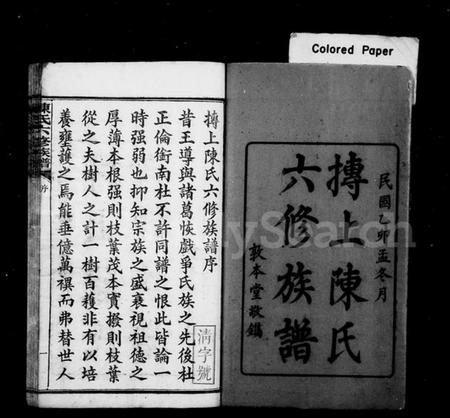 Colored Paper
民國乙卯孟冬月
摶上陳氏
六修族譜
敦本堂敬鐫
摶上陳氏六修族譜序
昔王導與諸葛恢戲爭氏族之先後杜
正倫銜南杜不許同譜之恨此皆論一
時强弱也抑知宗族之盛衰視祖德之
厚薄本根强則枝葉茂本實撥則枝葉
從之夫樹人之計一樹百穫非有以培
養壅護之焉能垂億萬禩而弗替世人
清字號
陳氏六修族譜
序
一